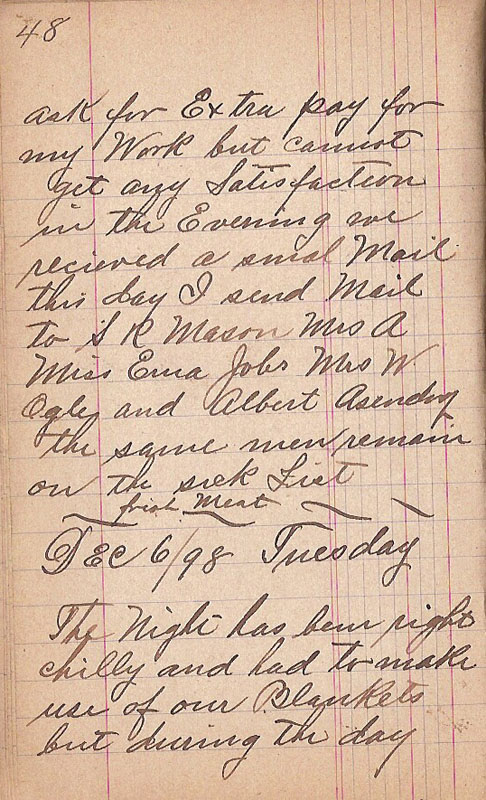 48
ask for Extra pay for
my Work but cannot
get any Satisfaction
in the Evening we
recieved a smal Mail
this day I send Mail
to S K Mason Mrs A
Miss Erna Jobs Mrs W
Ogle and Albert
the same men remain
on the sick List
frish Meat
DEC 6/98 Tuesday
The Night has been right
chilly and had to make
use of our Blankets
but during the day